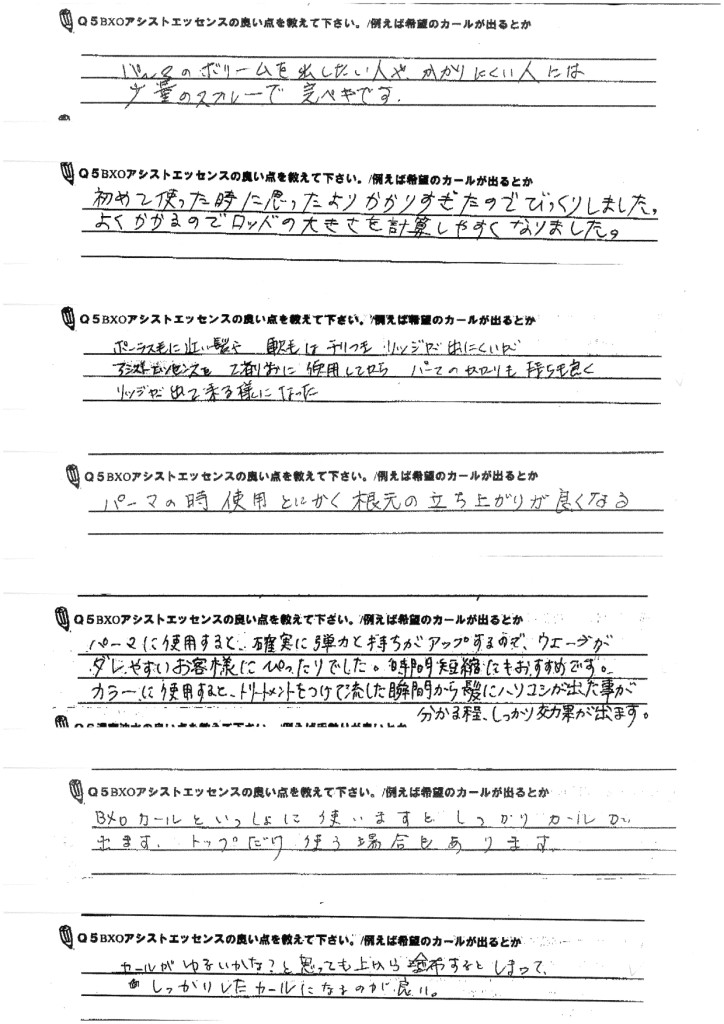 Q5BXOアシストエッセンスの良い点を教えて下さい。/例えば希望のカールが出るとか
パーマのボリームを出したい人や、かかりにくい人には
少量のスプレーで完ペキです。
Q5BXOアシストエッセンスの良い点を教えて下さい。/例えば希望のカールが出るとか
初めて使った時に思ったよりかかりすぎたのでびっくりしました。
よくかかるのでロッドの大きさを計算しやすくなりました。
Q5BXOアシストエッセンスの良い点を教えて下さい。/例えば希望のカールが出るとか
ポーラス毛に近い髪や 軟毛は リッジが出にくいが
アシストエッセンスを 使用してから パーマの かかりも 持ちも良く
リッジが出て来る様になった
Q5BXOアシストエッセンスの良い点を教えて下さい。/例えば希望のカールが出るとか
パーマの時使用とにかく根元の立ち上がりが良くなる
Q5BXOアシストエッセンスの良い点を教えて下さい。/例えば希望のカールが出るとか
パーマに使用すると、確実に弾力と持ちがアップするので、ウエーブが
ダレやすいお客様にぴったりでした。時間短縮にもおすすめです。
カラーに使用すると、トリートメントをつけて流した瞬間から髪にハリコシが出た事が
分かる程、しっかり効果が出ます。
Q5BXOアシストエッセンスの良い点を教えて下さい。/例えば希望のカールが出るとか
BXOカールといっしょに使いますとしっかりカールが
出ます。トップだけ使う場合もあります。
Q5BXOアシストエッセンスの良い点を教えて下さい。/例えば希望のカールが出るとか
カールがゆるいかな?と思っても上から塗布するとしまって、
しっかりしたカールになるのが良い。